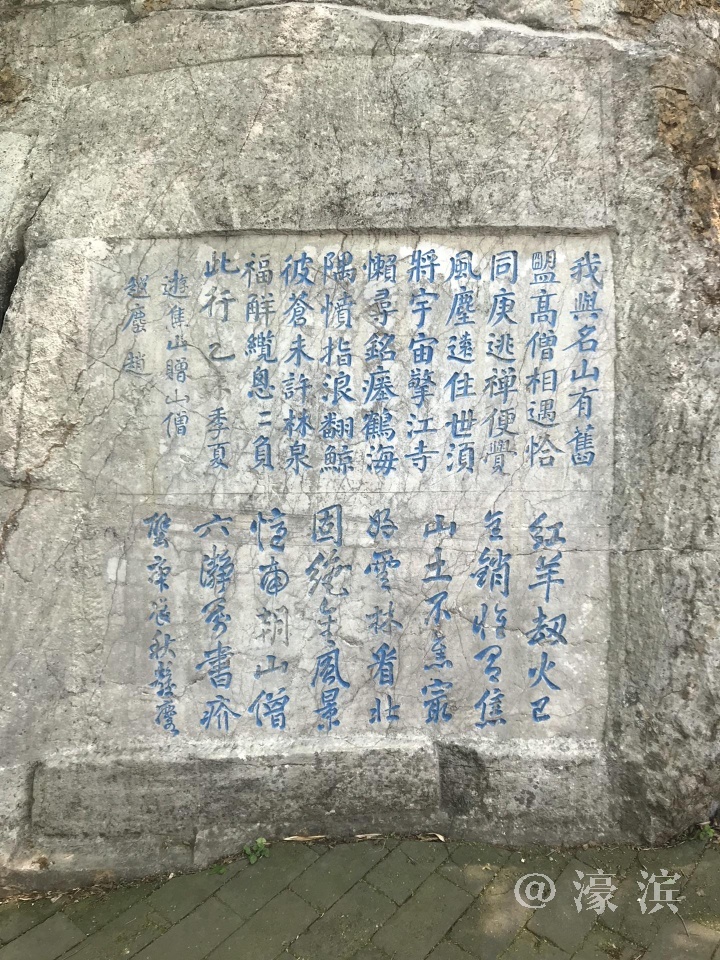 我與名山有舊
盟高僧相遇恰
同庚逃禅便覺
風塵遠住世須
將宇宙擎江寺
懶尋銘瘞鶴海
隅憤指浪翻鯨
彼蒼未許林泉
福觧纜怱二負
此行乙未季夏
遊焦山贈山僧
塵 趙
紅羊劫火已
全銷惟有焦
山土不焦最
好雲林看北
固絕佳風景
憶南朝山僧
六瀞書疥
壁庚辰秋
@濠滨